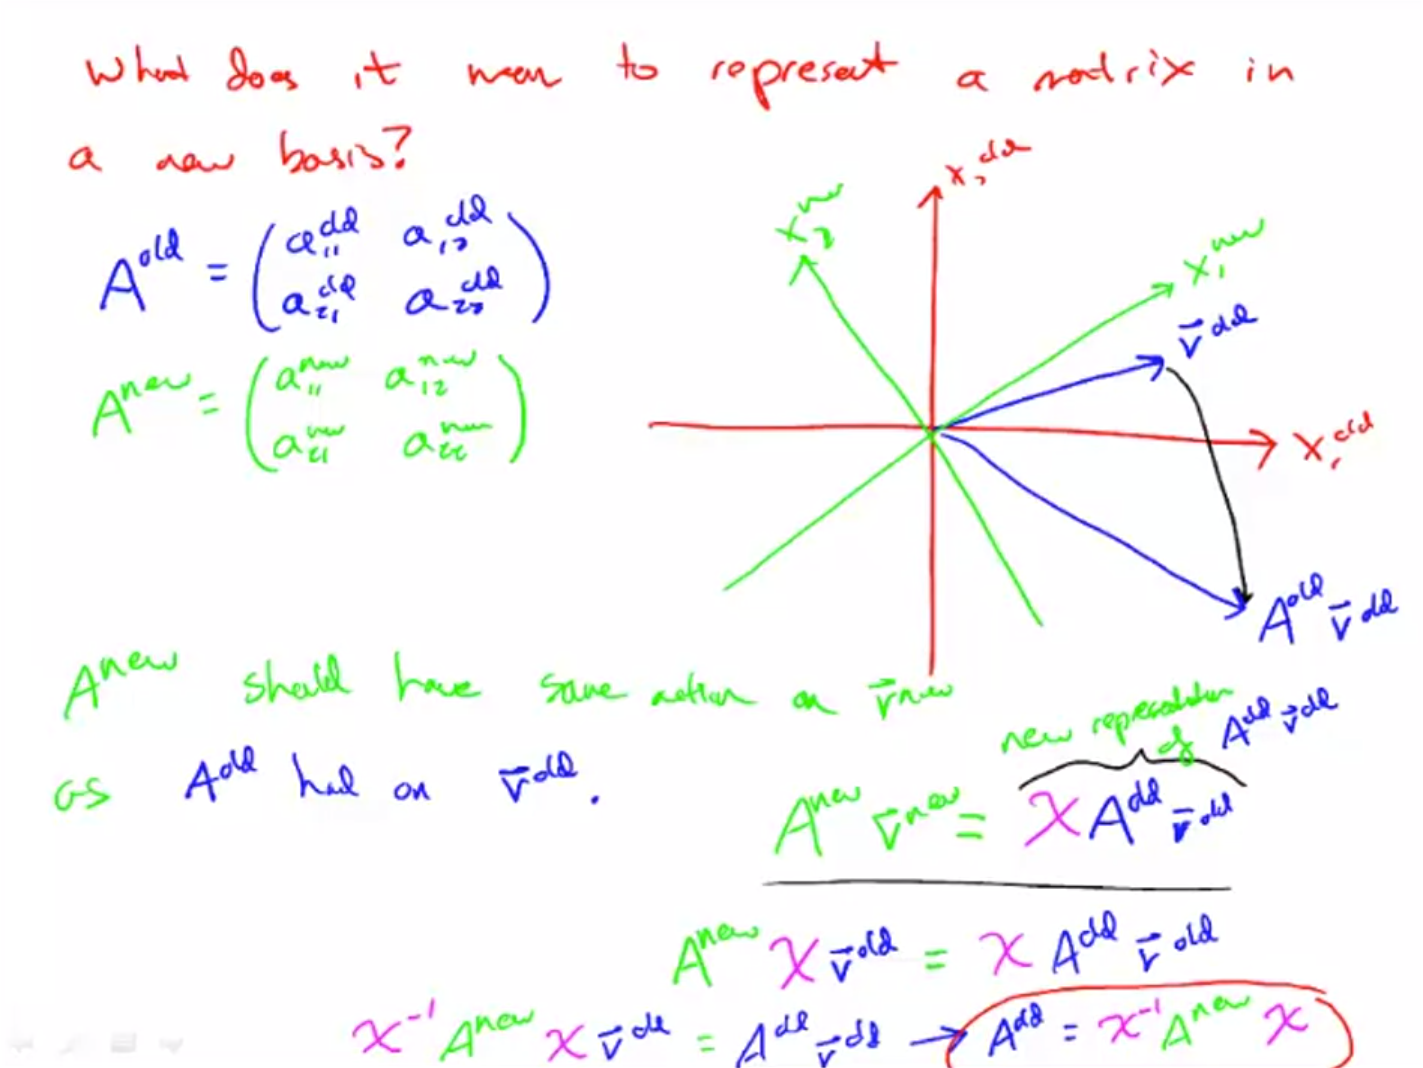 What does it mean to represent a matrix in
a new basis?
A^old = ( a_11^old a_12^old
a_21^old a_22^old )
A^new = ( a_11^new a_12^new
a_21^new a_22^new )
x_2^old
x_2^new
x_1^new
v⃗^old
x_1^old
A^old v⃗^old
A^new should have same action on v⃗^new
as A^old had on v⃗^old.
new representation
of A^old v⃗^old
A^new v⃗^new = X A^old v⃗^old
A^new X v⃗^old = X A^old v⃗^old
X^-1 A^new X v⃗^old = A^old v⃗^old → A^old = X^-1 A^new X